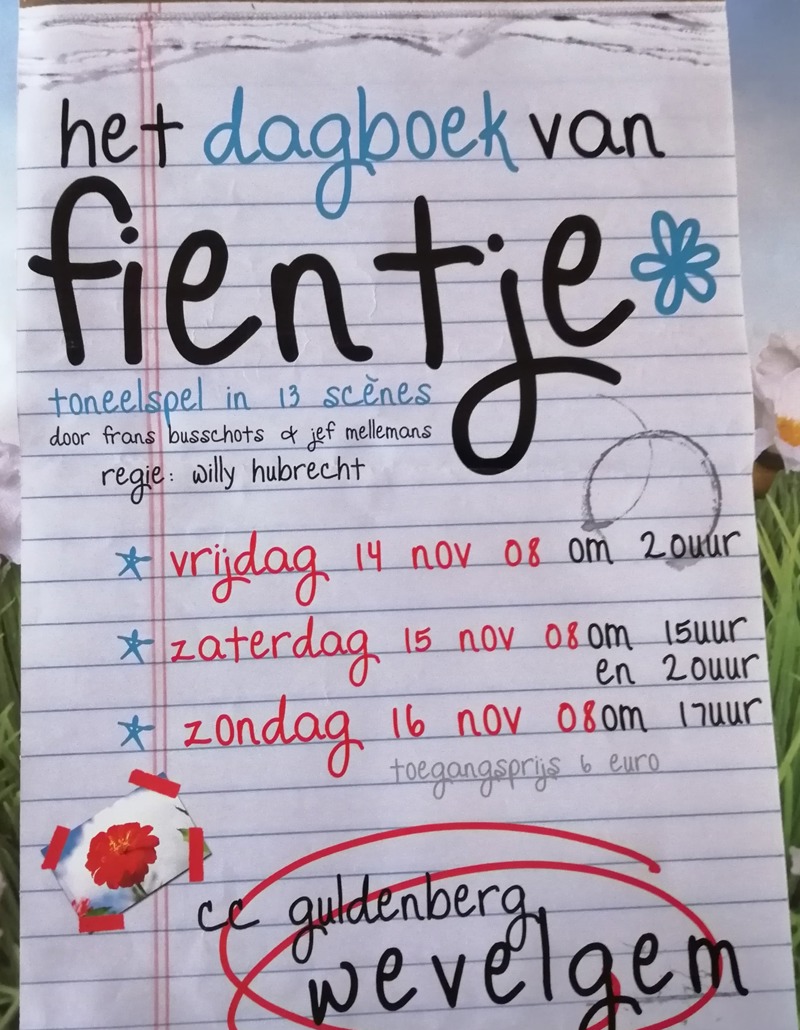 het dagboek van
fientje
toneelspel in 13 scènes
door frans busschots & jef mellemans
regie: willy hubrecht
vrijdag 14 nov 08 om 20uur
zaterdag 15 nov 08 om 15uur
en 20uur
zondag 16 nov 08 om 17uur
toegangsprijs 6 euro
cc guldenberg
wevelgem